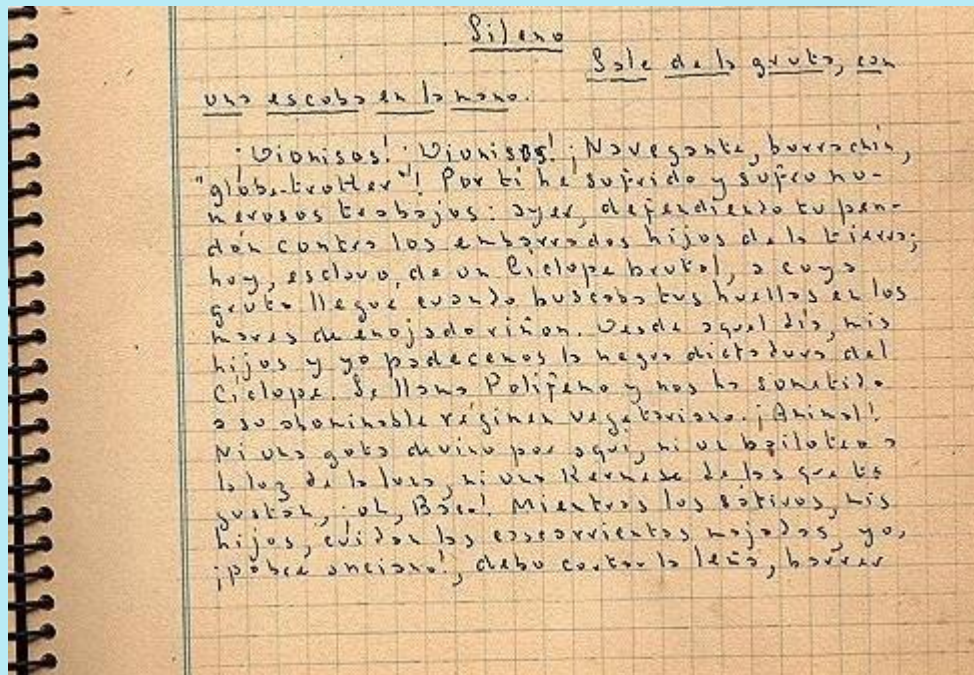 Sileno
Sale de la gruta, con
una escoba en la mano.
¡Dionisos! ¡Dionisos! ¡Navegante, borrachín,
"globe-trotter"! Por ti he sufrido y sufro nu-
merosos trabajos: ayer, defendiendo tu pen-
dón contra los embarrados hijos de la tierra;
hoy, esclavo de un Cíclope brutal, a cuya
gruta llegué cuando buscaba tus huellas en los
mares de enojado riñón. Desde aquel día, mis
hijos y yo padecemos la negra dictadura del
Cíclope. Se llama Polifemo y nos ha sometido
a su abominable régimen vegetariano. ¡Animal!
Ni una gota de vino por aquí, ni un bailoteo a
la luz de la luna, ni una Kermese de las que te
gustan, ¡oh, Baco! Mientras los sátiros, mis
hijos, cuidan las roñosas majadas, yo,
¡pobre anciano!, debo cortar la leña, barrer